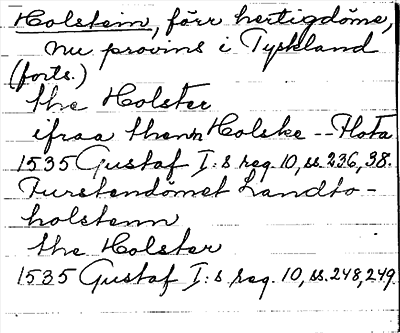 Holstein, förr hertigdöme,
nu provins i Tyskland
(forts.)
the Holster
ifraa then Holske -- Flota
1535 Gustaf I:s reg. 10, ss. 236, 38.
Furstendömet Landto-
holstenn
the Holster
1535 Gustaf I:s reg. 10, ss. 248, 249.